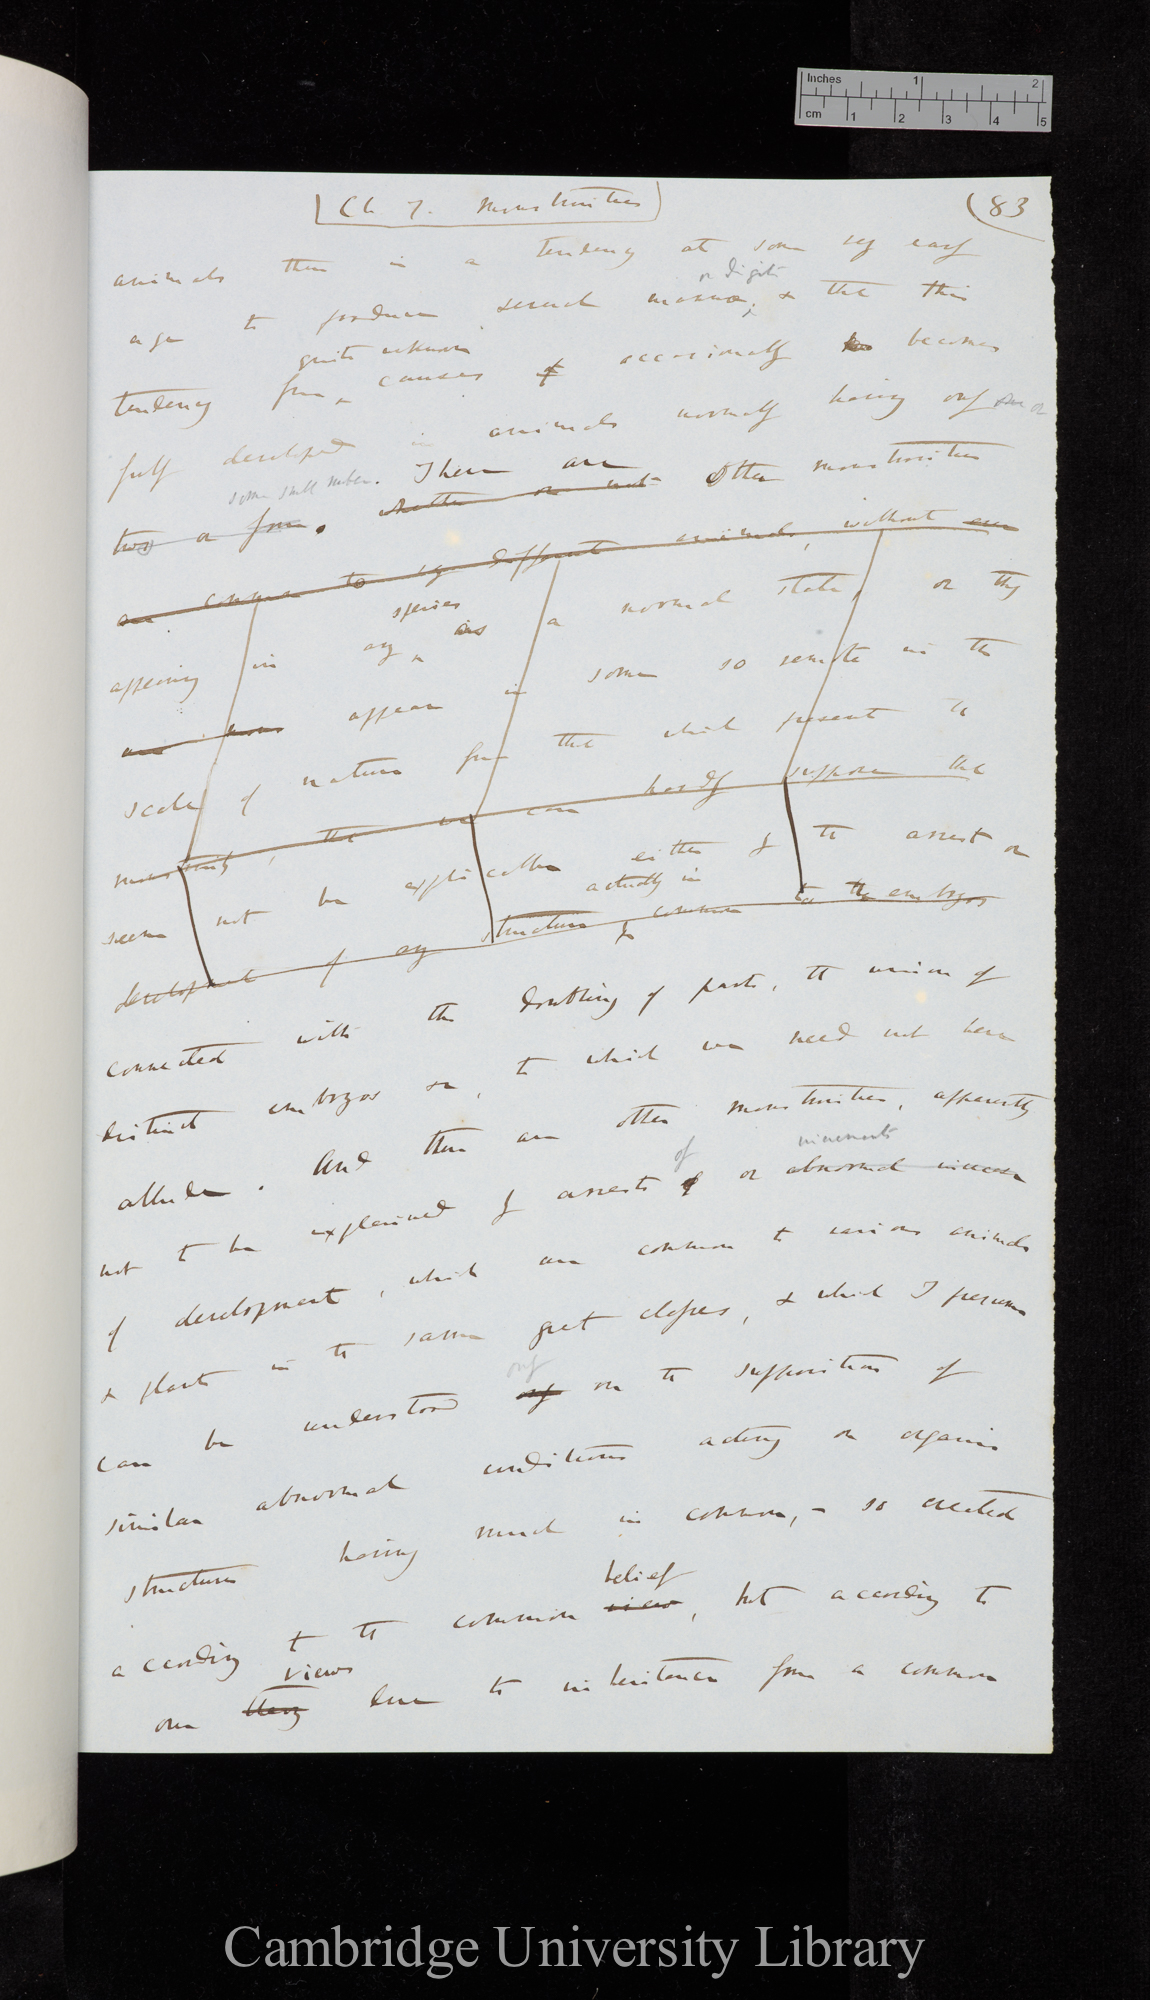 Inches 1 2
cm 1 2 3 4 5
Ch 7. Monstrosities
83
animals there is a tendency at some very early
or digits
age to produce several mammae; & that this
quite unknown
tendency from causes occasionally becomes
fully developed in animals normally having only one or
some small number. There are
two or four. whether or not other monstrosities
are common to very different animals, without ever
species
appearing in any as a normal state, or they
appear in some so remote in the
scale of nature from that which present the
monstrosity, that we can hardly suppose that
seem not be explicable either by the arrest or
actually in
development of any structure common to the embryos
connected with the doubling of parts, the union of
distinct embryos &c, to which we need not here
allude. And there are other monstrosities, apparently
of increments
not to be explained by arrests or abnormal increase
of development, which are common to various animals
& plants in the same great classes, & which I presume
only
can be understood only on the supposition of
similar abnormal conditions acting on organic
structures having much in common, – so created
belief
according to the common view, but according to
views
our theory due to inheritance from a common
Cambridge University Library